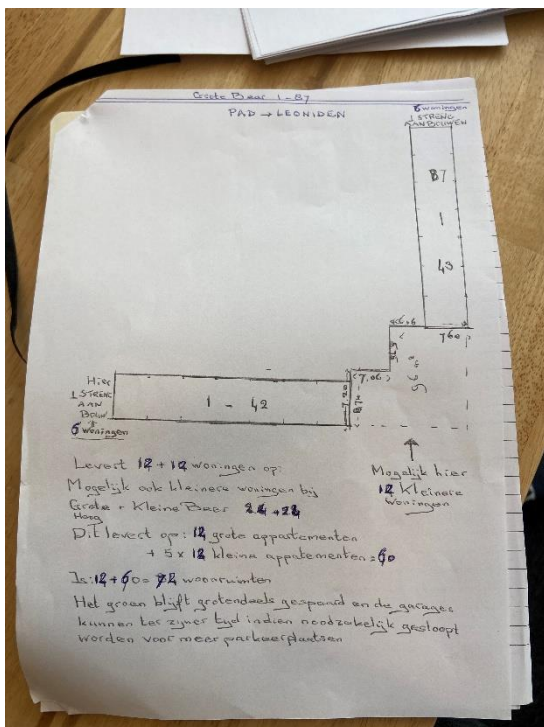 Grote Beer 1 - 87
PAD → LEONIDEN
6 woningen
1 STRENG
AANBOUWEN
87
1
43
760
7,06
7.20
8,72
Hier
1 STRENG
AAN
BOUW
6 woningen
1 - 42
Mogelijk hier
12 kleinere
woningen
Levert 12 + 12 woningen op:
Mogelijk ook kleinere woningen bij
Grote + Kleine Beer 24 + 24
Hoog
Dit levert op: 12 grote appartementen
+ 5 x 12 kleine appatementen = 60
Is: 12 + 60 = 72 woonruimten
Het groen blijft grotendeels gespaard en de garages
kunnen ter zijner tijd indien noodzakelijk gesloopt
worden voor meer parkeerplaatsen